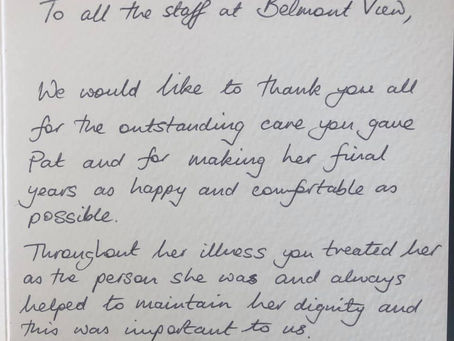 To all the staff at Belmont View,
We would like to thank you all
for the outstanding care you gave
Pat and for making her final
years as happy and comfortable as
possible.
Throughout her illness you treated her
as the person she was and always
helped to maintain her dignity and
this was important to us.